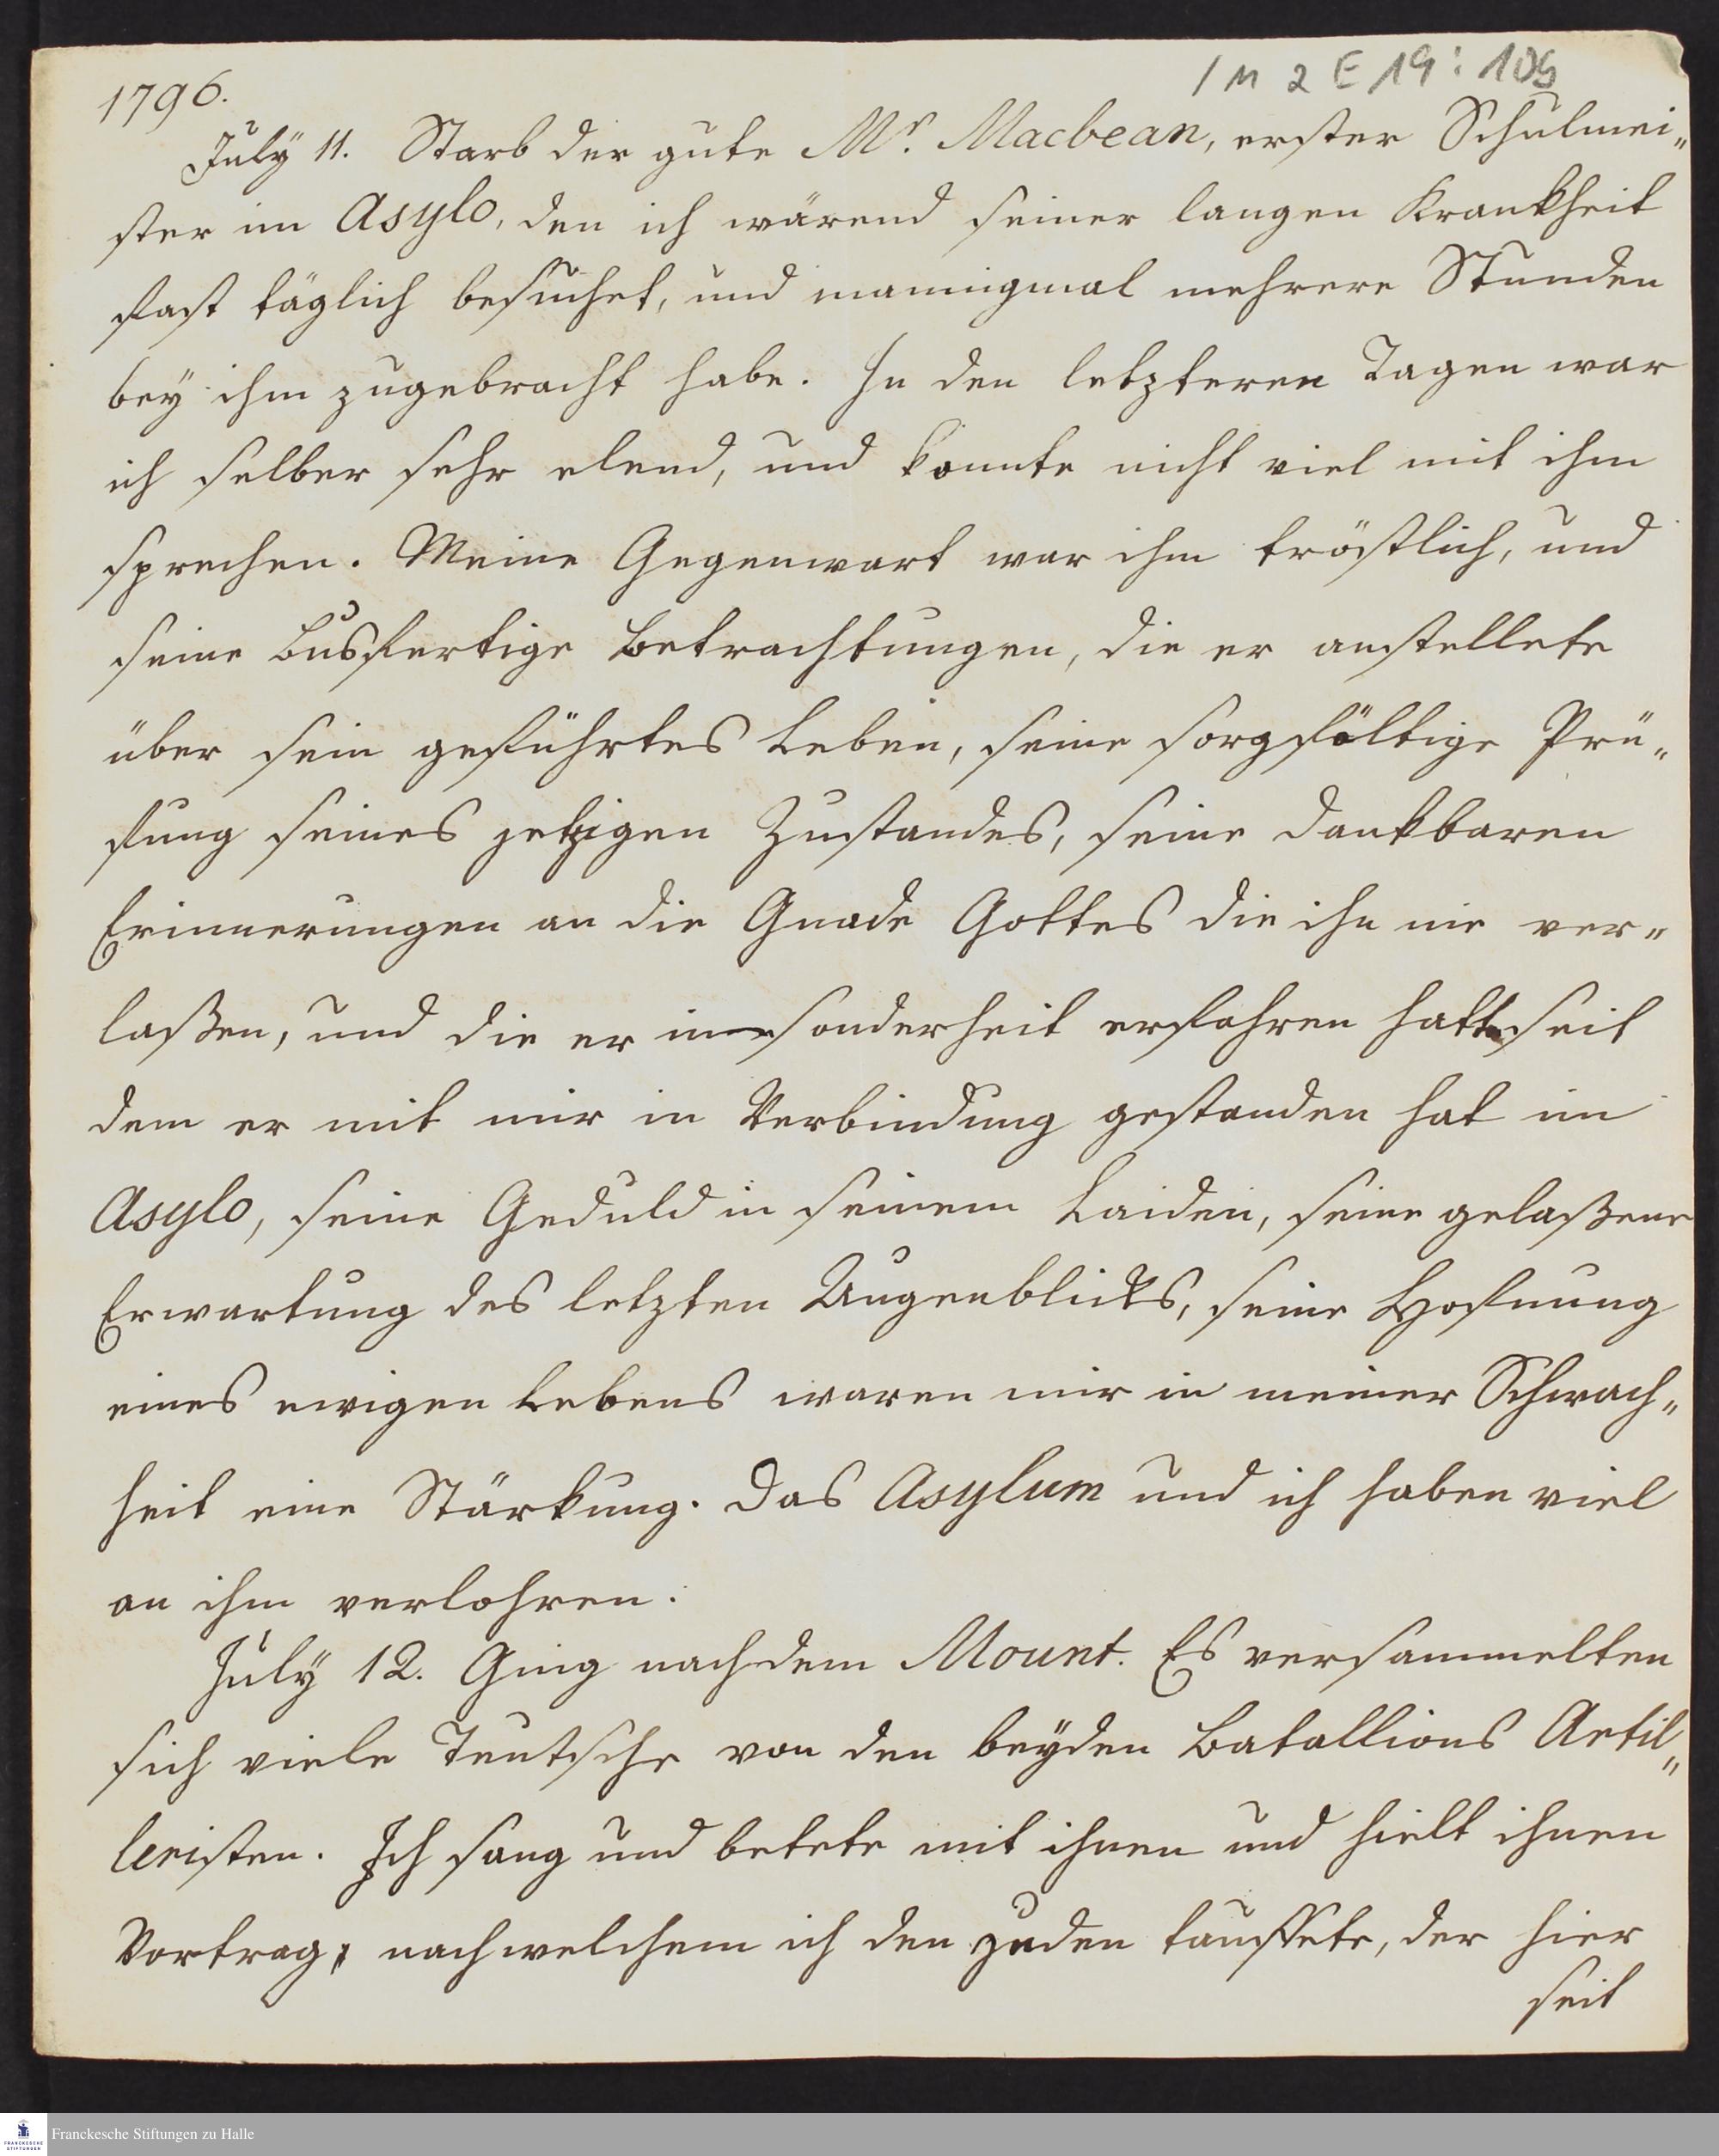 1 M 2 E 19 : 109
1796.
July 11. Starb der gute Mr. Macbean, erster Schulmei„
ster im Asylo, den ich wärend seiner langen Krankheit
fast täglich besuchet, und mannigmal mehrere Stunden
bey ihm zugebracht habe. In den letzteren Tagen war
ich selber sehr elend, und konnte nicht viel mit ihm
sprechen. Meine Gegenwart war ihm tröstlich, und
seine busfertige Betrachtungen, die er anstellete
über sein geführtes Leben, seine sorgfältige Prü„
fung seines jetzigen Zustandes, seine dankbaren
Erinnerungen an die Gnade Gottes die ihn nie ver„
laßen, und die er insonderheit erfahren hatte seit
dem er mit mir in Verbindung gestanden hat im
Asylo, seine Geduld in seinem Leiden, seine gelaßene
Erwartung des letzten Augenblicks, seine Hofnung
eines ewigen Lebens waren mir in meiner Schwach„
heit eine Stärkung. Das Asylum und ich haben viel
an ihm verlohren.
July 12. Ging nach dem Mount. Es versammelten
sich viele Teutsche von den beyden Batallions Artil„
leristen. Ich sang und betete mit ihnen und hielt ihnen
Vortrag, nach welchem ich den Juden tauffete, der hier
seit
FRANCKESCHE
STIFTUNGEN
Franckesche Stiftungen zu Halle